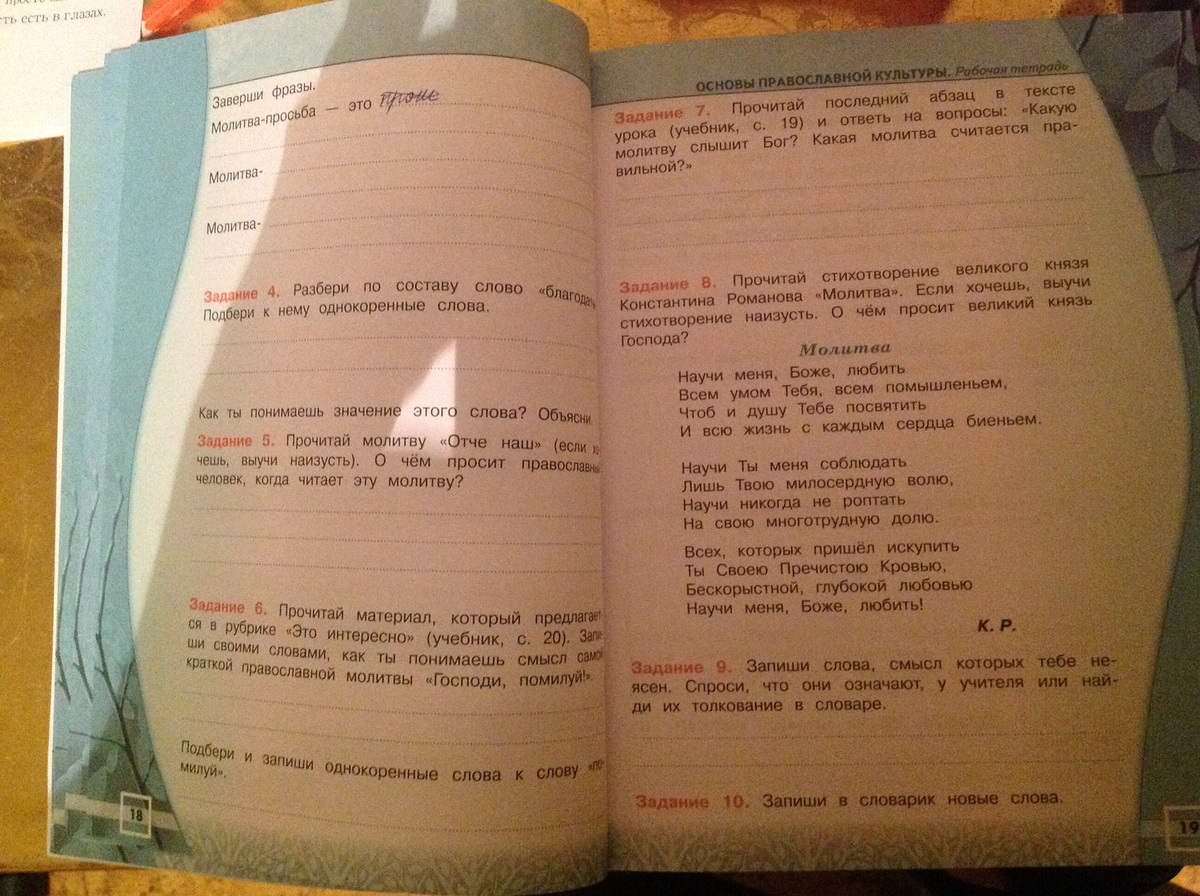 ть есть в глазах.
Заверши фразы.
Молитва-просьба — это
Молитва-
Молитва-
Задание 4. Разбери по составу слово «благодать
Подбери к нему однокоренные слова.
Как ты понимаешь значение этого слова? Объясни.
Задание 5. Прочитай молитву «Отче наш» (если хо-
чешь, выучи наизусть). О чём просит православный
человек, когда читает эту молитву?
Задание 6. Прочитай материал, который предлагает-
ся в рубрике «Это интересно» (учебник, с. 20). Запи-
ши своими словами, как ты понимаешь смысл самой
краткой православной молитвы «Господи, помилуй!».
Подбери и запиши однокоренные слова к слову «по-
милуй».
18
ОСНОВЫ ПРАВОСЛАВНОЙ КУЛЬТУРЫ. Рабочая тетрадь
Задание 7. Прочитай последний абзац в тексте
урока (учебник, с. 19) и ответь на вопросы: «Какую
молитву слышит Бог? Какая молитва считается пра-
вильной?»
Задание 8. Прочитай стихотворение великого князя
Константина Романова «Молитва». Если хочешь, выучи
стихотворение наизусть. О чём просит великий князь
Господа?
Молитва
Научи меня, Боже, любить
Всем умом Тебя, всем помышленьем,
Чтоб и душу Тебе посвятить
И всю жизнь с каждым сердца биеньем.
Научи Ты меня соблюдать
Лишь Твою милосердную волю,
Научи никогда не роптать
На свою многотрудную долю.
Всех, которых пришёл искупить
Ты Своею Пречистою Кровью,
Бескорыстной, глубокой любовью
Научи меня, Боже, любить!
К. Р.
Задание 9. Запиши слова, смысл которых тебе не-
ясен. Спроси, что они означают, у учителя или най-
ди их толкование в словаре.
Задание 10. Запиши в словарик новые слова.
19